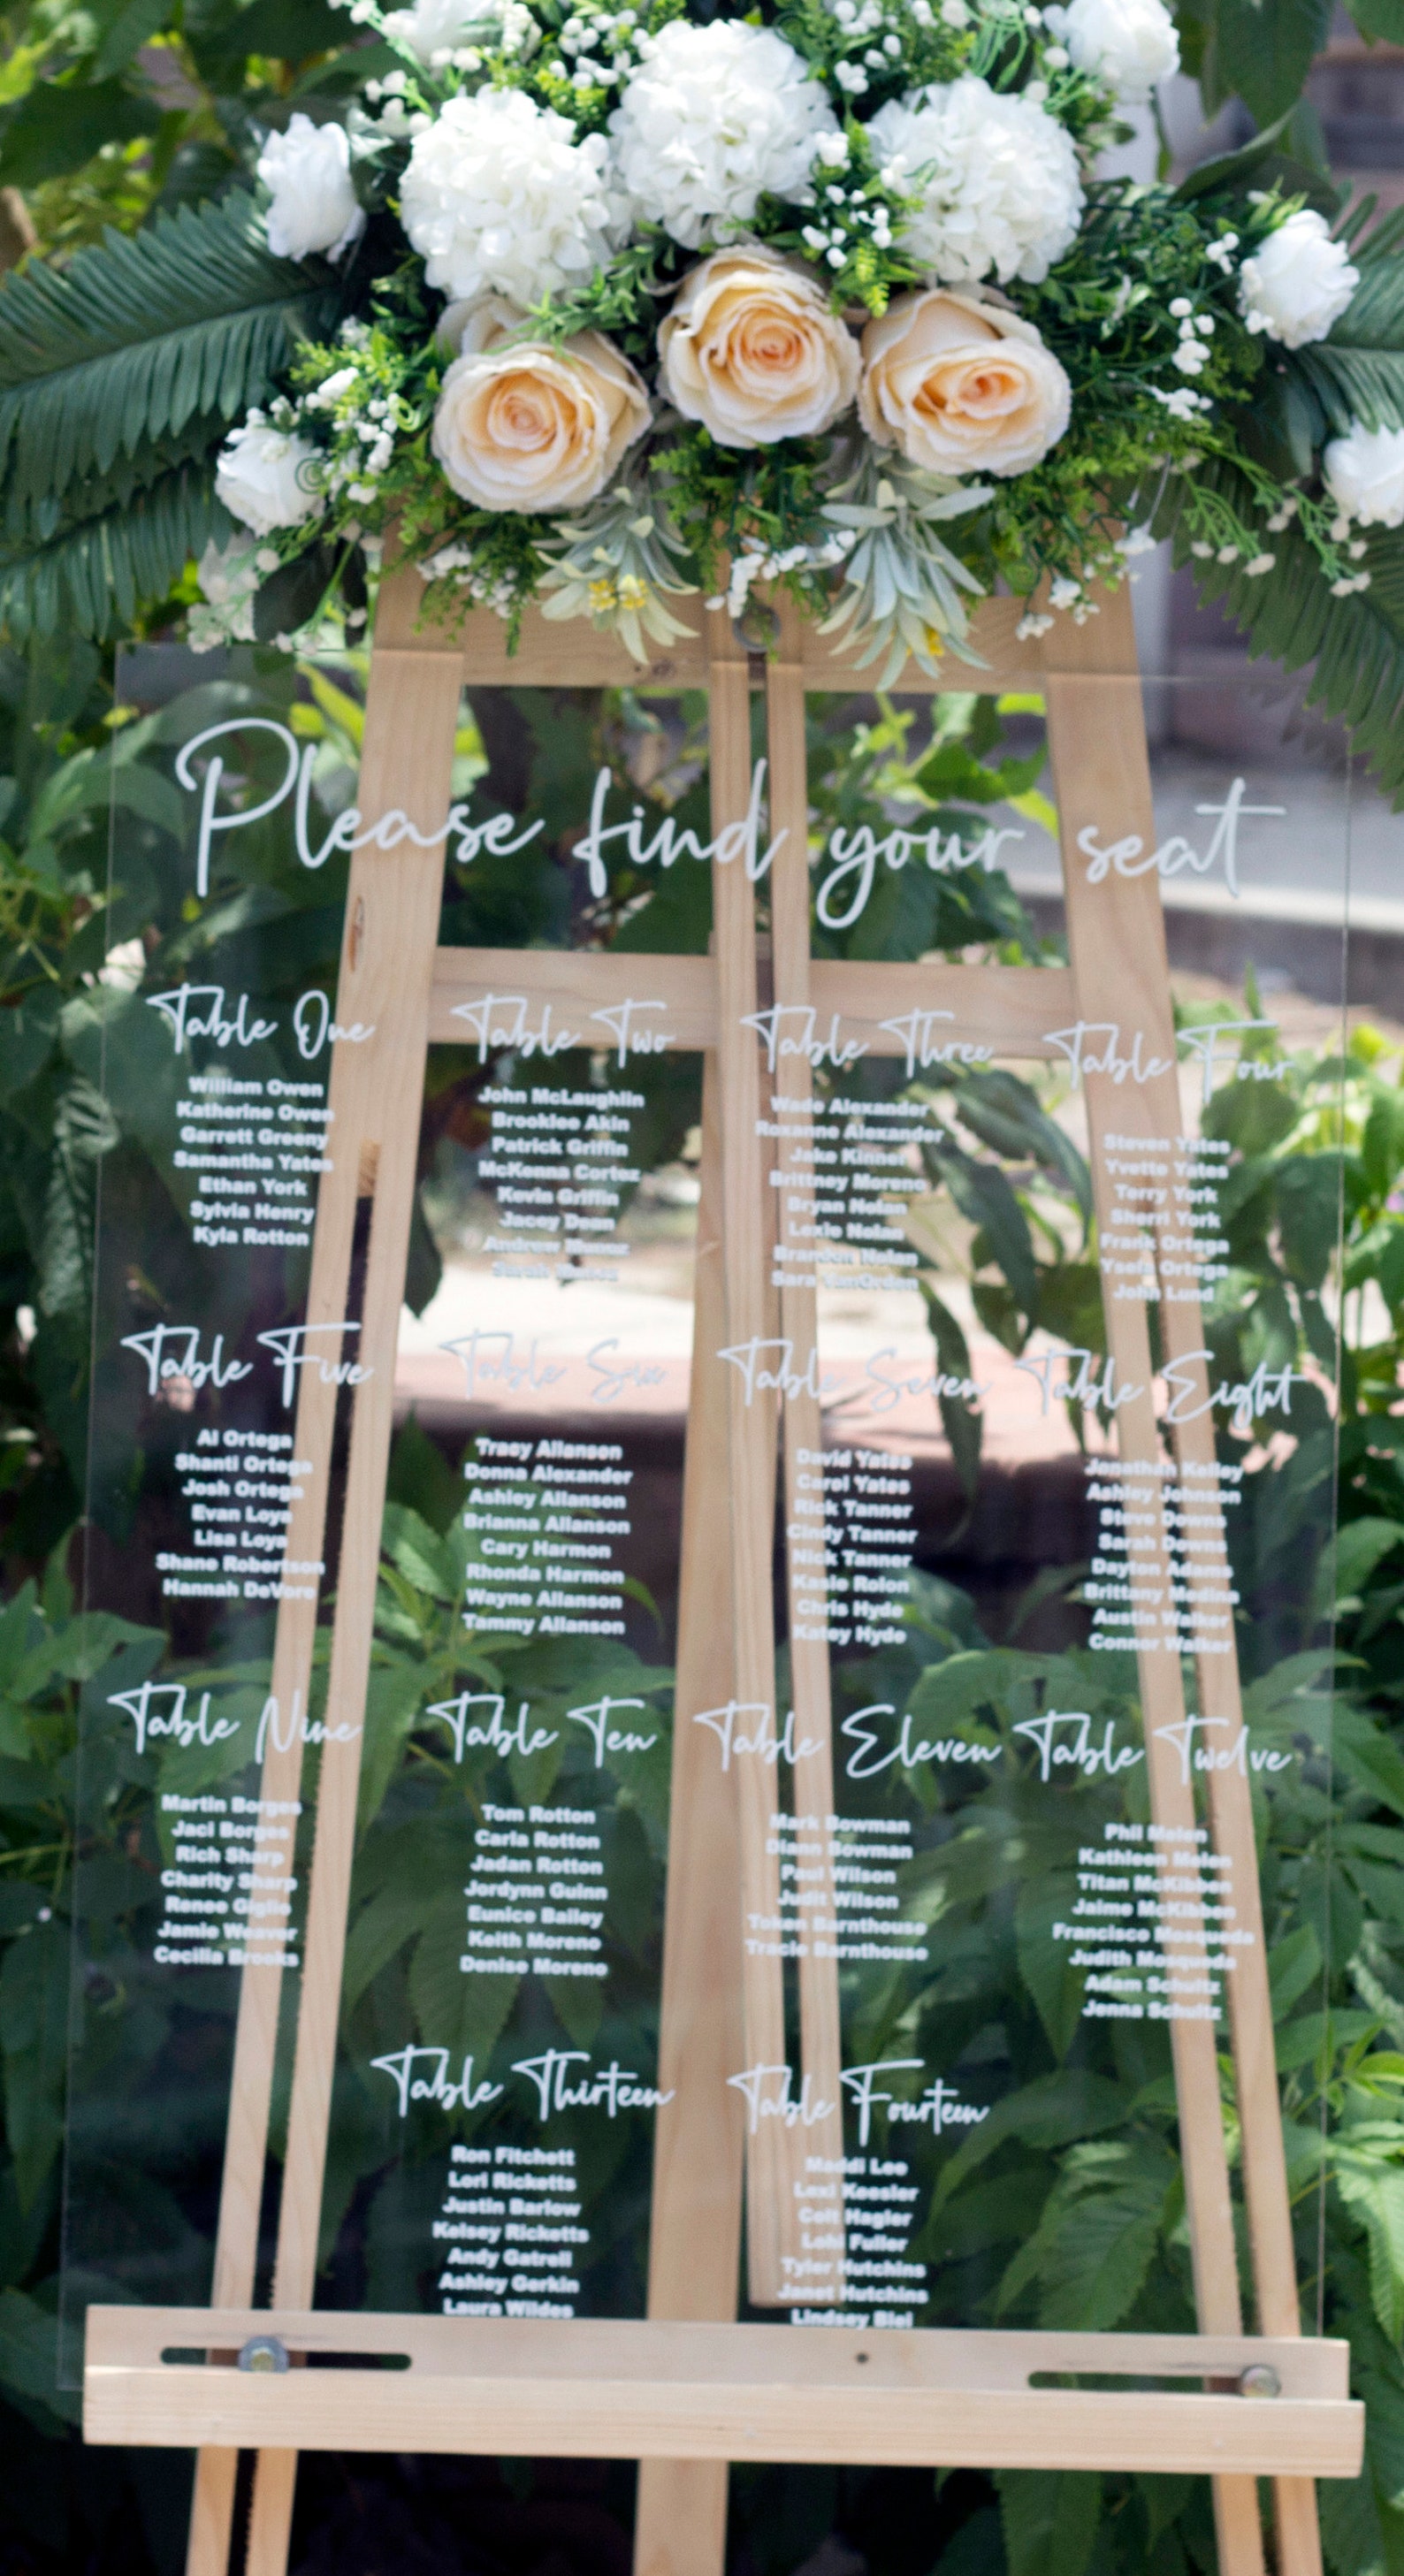 Please find your seat
Table One
William Owen
Katherine Owen
Garrett Greeny
Samantha Yates
Ethan York
Sylvia Henry
Kyla Rotton
Table Two
John McLaughlin
Brooklee Akin
Patrick Griffin
McKenna Cortez
Kevin Griffin
Jacey Dean
Andrew Munoz
Sarah Munoz
Table Three
Wade Alexander
Roxanne Alexander
Jake Kinner
Brittney Moreno
Bryan Nolan
Lexie Nolan
Brandon Nolan
Sara VanOrden
Table Four
Steven Yates
Yvette Yates
Terry York
Sherri York
Frank Ortega
Ysela Ortega
John Lund
Table Five
Al Ortega
Shanti Ortega
Josh Ortega
Evan Loya
Lisa Loya
Shane Robertson
Hannah DeVore
Table Six
Tracy Allanson
Donna Alexander
Ashley Allanson
Brianna Allanson
Cary Harmon
Rhonda Harmon
Wayne Allanson
Tammy Allanson
Table Seven
David Yates
Carol Yates
Rick Tanner
Cindy Tanner
Nick Tanner
Kasie Rolon
Chris Hyde
Katey Hyde
Table Eight
Jonathan Kelley
Ashley Johnson
Steve Downs
Sarah Downs
Dayton Adams
Brittany Medina
Austin Walker
Connor Walker
Table Nine
Martin Borges
Jaci Borges
Rich Sharp
Charity Sharp
Renee Giglio
Jamie Weaver
Cecilia Brooks
Table Ten
Tom Rotton
Carla Rotton
Jadan Rotton
Jordynn Guinn
Eunice Bailey
Keith Moreno
Denise Moreno
Table Eleven
Mark Bowman
Diann Bowman
Paul Wilson
Judit Wilson
Token Barnthouse
Tracie Barnthouse
Table Twelve
Phil
Kathleen
Titan McKibben
Jaime McKibben
Francisco Mosqueda
Judith Mosqueda
Adam Schultz
Jenna Schultz
Table Thirteen
Ron Fitchett
Lori Ricketts
Justin Barlow
Kelsey Ricketts
Andy Gatrell
Ashley Gerkin
Laura Wildes
Table Fourteen
Maddi Lee
Lexi Keesler
Colt Hagler
Loki Fuller
Tyler Hutchins
Janet Hutchins
Lindsey Biel